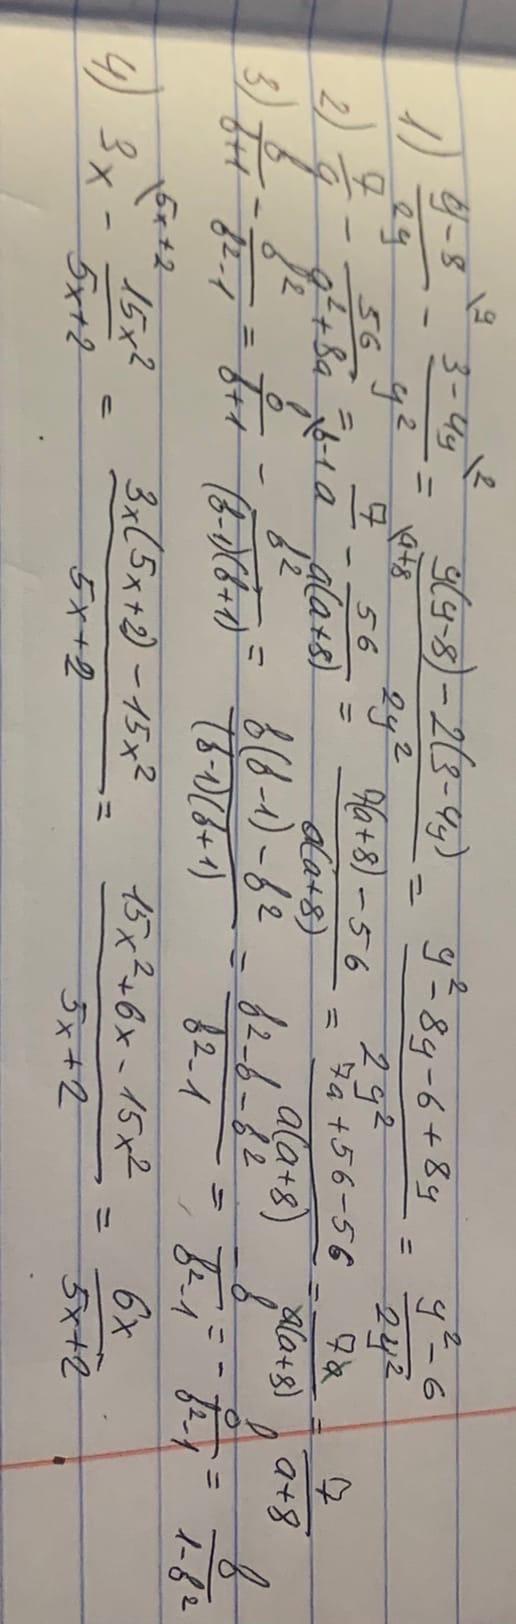 1) \frac{y-8}{2y}^{\y} - \frac{3-4y}{y^2}^{\2} = \frac{y(y-8)-2(3-4y)}{2y^2} = \frac{y^2-8y-6+8y}{2y^2} = \frac{y^2-6}{2y^2}
2) \frac{7}{a} - \frac{56}{a^2+8a} = \frac{7}{a}^{\a+8} - \frac{56}{a(a+8)} = \frac{7(a+8)-56}{a(a+8)} = \frac{7a+56-56}{a(a+8)} = \frac{7a}{a(a+8)} = \frac{7}{a+8}
3) \frac{b}{b+1} - \frac{b^2}{b^2-1} = \frac{b}{b+1}^{\b-1} - \frac{b^2}{(b-1)(b+1)} = \frac{b(b-1)-b^2}{(b-1)(b+1)} = \frac{b^2-b-b^2}{b^2-1} = \frac{-b}{b^2-1} = -\frac{b}{b^2-1} = \frac{b}{1-b^2}
4) 3x^{\5x+2} - \frac{15x^2}{5x+2} = \frac{3x(5x+2)-15x^2}{5x+2} = \frac{15x^2+6x-15x^2}{5x+2} = \frac{6x}{5x+2}